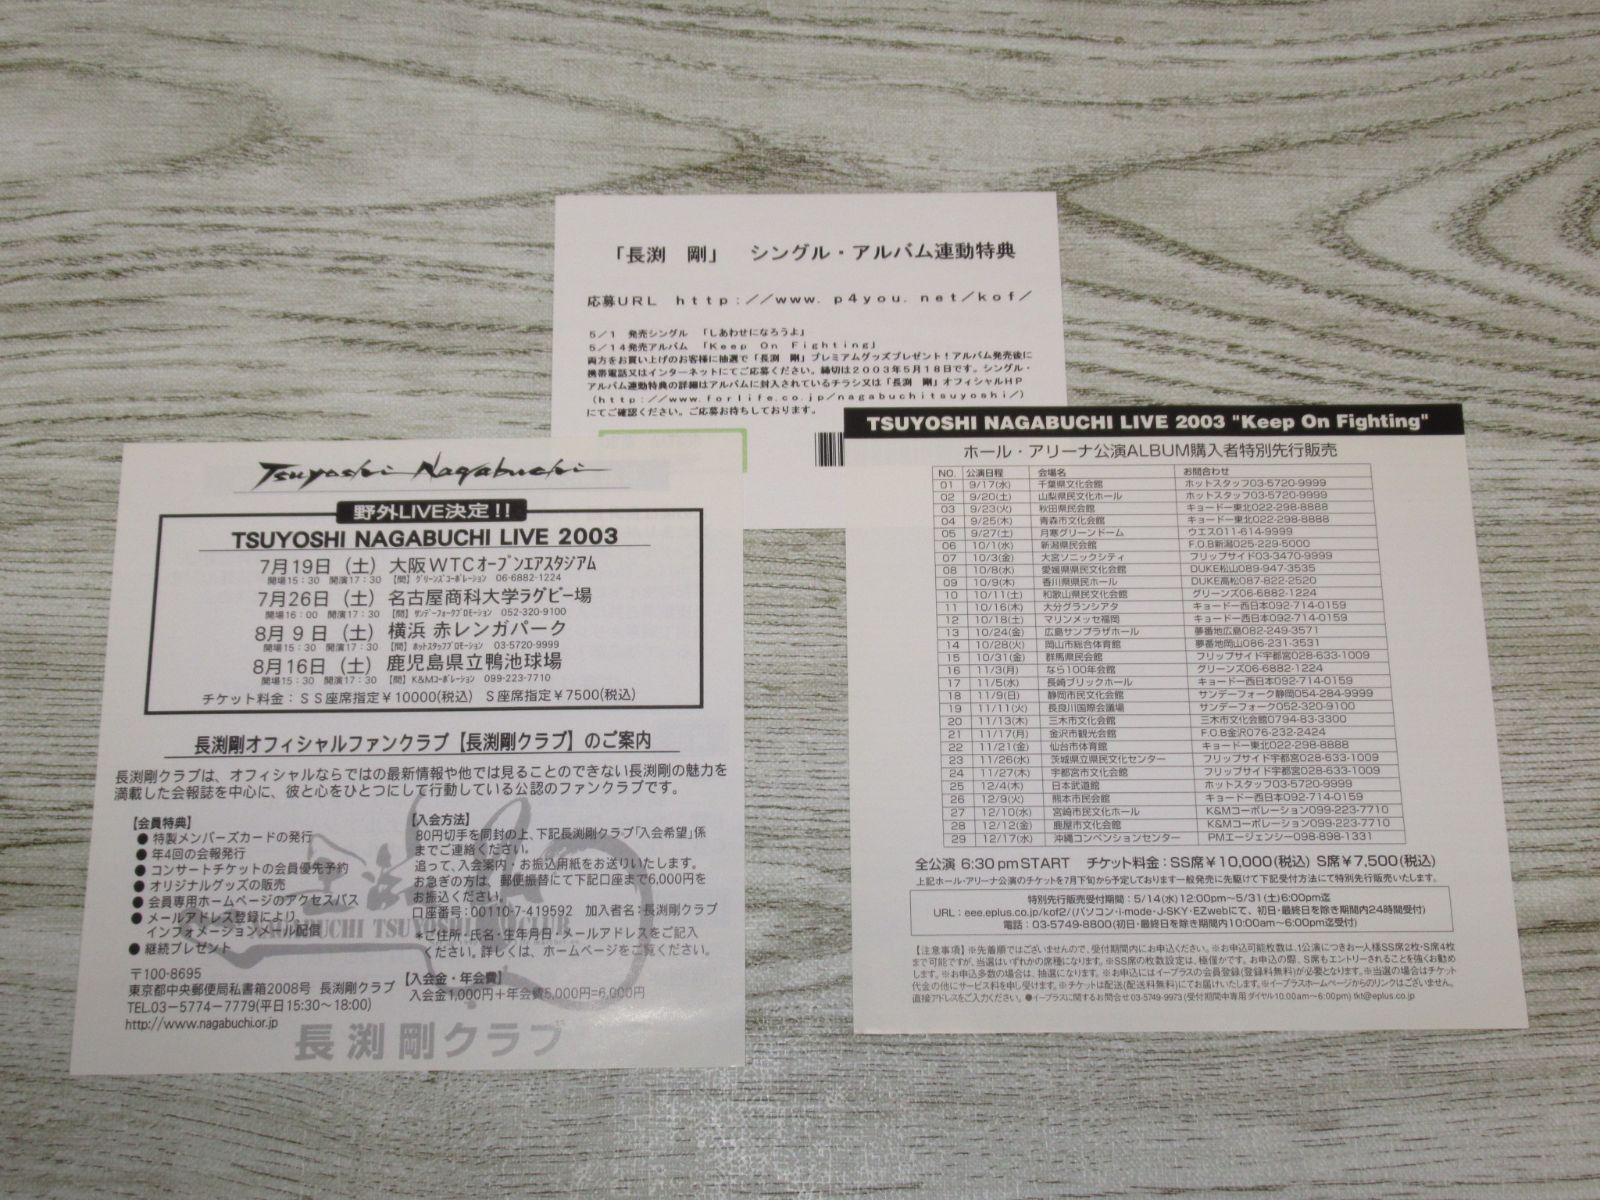 「長渕　剛」　シングル・アルバム連動特典
応募URL　http://www.p4you.net/kof/
5/1　発売シングル　「しあわせになろうよ」
5/14発売アルバム　「Keep On Fighting」
両方をお買い上げのお客様に抽選で「長渕　剛」プレミアムグッズプレゼント！アルバム発売後に
携帯電話又はインターネットにてご応募ください。締切は2003年5月18日です。シングル・
アルバム連動特典の詳細はアルバムに封入されているチラシ又は「長渕　剛」オフィシャルHP
(http://www.forlife.co.jp/nagabuchitsuyoshi/)
にてご確認ください。ご応募お待ちしております。
Tsuyoshi Nagabuchi
野外LIVE決定!!
TSUYOSHI NAGABUCHI LIVE 2003
7月19日（土）大阪WTCオープンエアスタジアム
開場15：30　開演17：30　【問】グリーンズコーポレーション　06-6882-1224
7月26日（土）名古屋商科大学ラグビー場
開場16：00　開演17：30　【問】サンデーフォークプロモーション　052-320-9100
8月9日（土）横浜 赤レンガパーク
開場15：30　開演17：30　【問】ホットスタッフプロモーション　03-5720-9999
8月16日（土）鹿児島県立鴨池球場
開場15：30　開演17：30　【問】K&Mコーポレーション　099-223-7710
チケット料金：SS座席指定￥10000(税込)　S座席指定￥7500(税込)
長渕剛オフィシャルファンクラブ【長渕剛クラブ】のご案内
長渕剛クラブは、オフィシャルならではの最新情報や他では見ることのできない長渕剛の魅力を
満載した会報誌を中心に、彼と心をひとつにして行動している公認のファンクラブです。
【会員特典】
●特製メンバーズカードの発行
●年4回の会報発行
●コンサートチケットの会員優先予約
●オリジナルグッズの販売
●会員専用ホームページのアクセスパス
●メールアドレス登録により
インフォメーションメール配信
●継続プレゼント
〒100-8695
東京都中央郵便局私書箱2008号　長渕剛クラブ
TEL.03-5774-7779(平日15:30〜18:00)
http://www.nagabuchi.or.jp
【入会方法】
80円切手を同封の上、下記長渕剛クラブ「入会希望」係
までご連絡ください。
追って、入会案内・お振込用紙をお送りいたします。
お急ぎの方は、郵便振替にて下記口座まで6,000円を
お振込ください。
口座番号：00110-7-419592　加入者名：長渕剛クラブ
*ご住所・氏名・生年月日・メールアドレスをご記入
ください。詳しくは、ホームページをご覧ください。
【入会金・年会費】
入会金1,000円＋年会費5,000円=6,000円
長渕剛クラブ
TSUYOSHI NAGABUCHI LIVE 2003 "Keep On Fighting"
ホール・アリーナ公演ALBUM購入者特別先行販売
NO. 公演日程 会場名 お問合わせ
01 9/17(水) 千葉県文化会館 ホットスタッフ03-5720-9999
02 9/20(土) 山梨県民文化ホール ホットスタッフ03-5720-9999
03 9/23(火) 秋田県民会館 キョードー東北022-298-8888
04 9/25(木) 青森市文化会館 キョードー東北022-298-8888
05 9/27(土) 月寒グリーンドーム ウエス011-614-9999
06 10/1(水) 新潟県民会館 F.O.B新潟025-229-5000
07 10/3(金) 大宮ソニックシティ フリップサイド03-3470-9999
08 10/8(水) 愛媛県県民文化会館 DUKE松山089-947-3535
09 10/9(木) 香川県県民ホール DUKE高松087-822-2520
10 10/11(土) 和歌山県民文化会館 グリーンズ06-6882-1224
11 10/16(木) 大分グランシアタ キョードー西日本092-714-0159
12 10/18(土) マリンメッセ福岡 キョードー西日本092-714-0159
13 10/24(金) 広島サンプラザホール 夢番地広島082-249-3571
14 10/28(火) 岡山市総合体育館 夢番地岡山086-231-3531
15 10/31(金) 群馬県民会館 フリップサイド宇都宮028-633-1009
16 11/3(月) なら100年会館 グリーンズ06-6882-1224
17 11/5(水) 長崎ブリックホール キョードー西日本092-714-0159
18 11/9(日) 静岡市民文化会館 サンデーフォーク静岡054-284-9999
19 11/11(火) 長良川国際会議場 サンデーフォーク052-320-9100
20 11/13(木) 三木市文化会館 三木市文化会館0794-83-3300
21 11/17(月) 金沢市観光会館 F.O.B金沢076-232-2424
22 11/21(金) 仙台市体育館 キョードー東北022-298-8888
23 11/26(水) 茨城県立県民文化センター フリップサイド宇都宮028-633-1009
24 11/27(木) 宇都宮市文化会館 フリップサイド宇都宮028-633-1009
25 12/4(木) 日本武道館 ホットスタッフ03-5720-9999
26 12/9(火) 熊本市民会館 キョードー西日本092-714-0159
27 12/10(水) 宮崎市民文化ホール K&Mコーポレーション099-223-7710
28 12/12(金) 鹿屋市文化会館 K&Mコーポレーション099-223-7710
29 12/17(水) 沖縄コンベンションセンター PMエージェンシー098-898-1331
全公演 6:30pm START　チケット料金：SS席￥10,000(税込) S席￥7,500(税込)
上記ホール・アリーナ公演のチケットを7月下旬から予定しております一般発売に先駆けて下記受付方法にて特別先行販売いたします。
特別先行販売受付期間：5/14(水)12:00pm〜5/31(土)6:00pm迄
URL：eee.eplus.co.jp/kof2/(パソコン・i-mode・J-SKY・EZwebにて、初日・最終日を除き期間内24時間受付)
電話：03-5749-8800(初日・最終日を除き期間内10:00am〜6:00pm迄受付)
【注意事項】※先着順ではございませんので、受付期間内にお申込ください。※お申込可能枚数は、1公演につきお一人様SS席2枚・S席4枚
まで可能ですが、当選はいずれかの席種になります。※SS席の枚数設定は、極僅かです。お申込の際、S席もエントリーされることを強くお勧め
します。※お申込多数の場合は、抽選になります。※お申込にはイープラスの会員登録(登録料無料)が必要となります。※当選の場合はチケット
代金の他にサービス料を申し受けます。※チケットは配送(配送料無料)にてお届けいたします。※イープラスホームページからのリンクはございません。
直接アドレスをご入力ください。●イープラスに関するお問合せ03-5749-9973(受付期間中専用ダイヤル10:00am〜6:00pm) tkt@eplus.co.jp